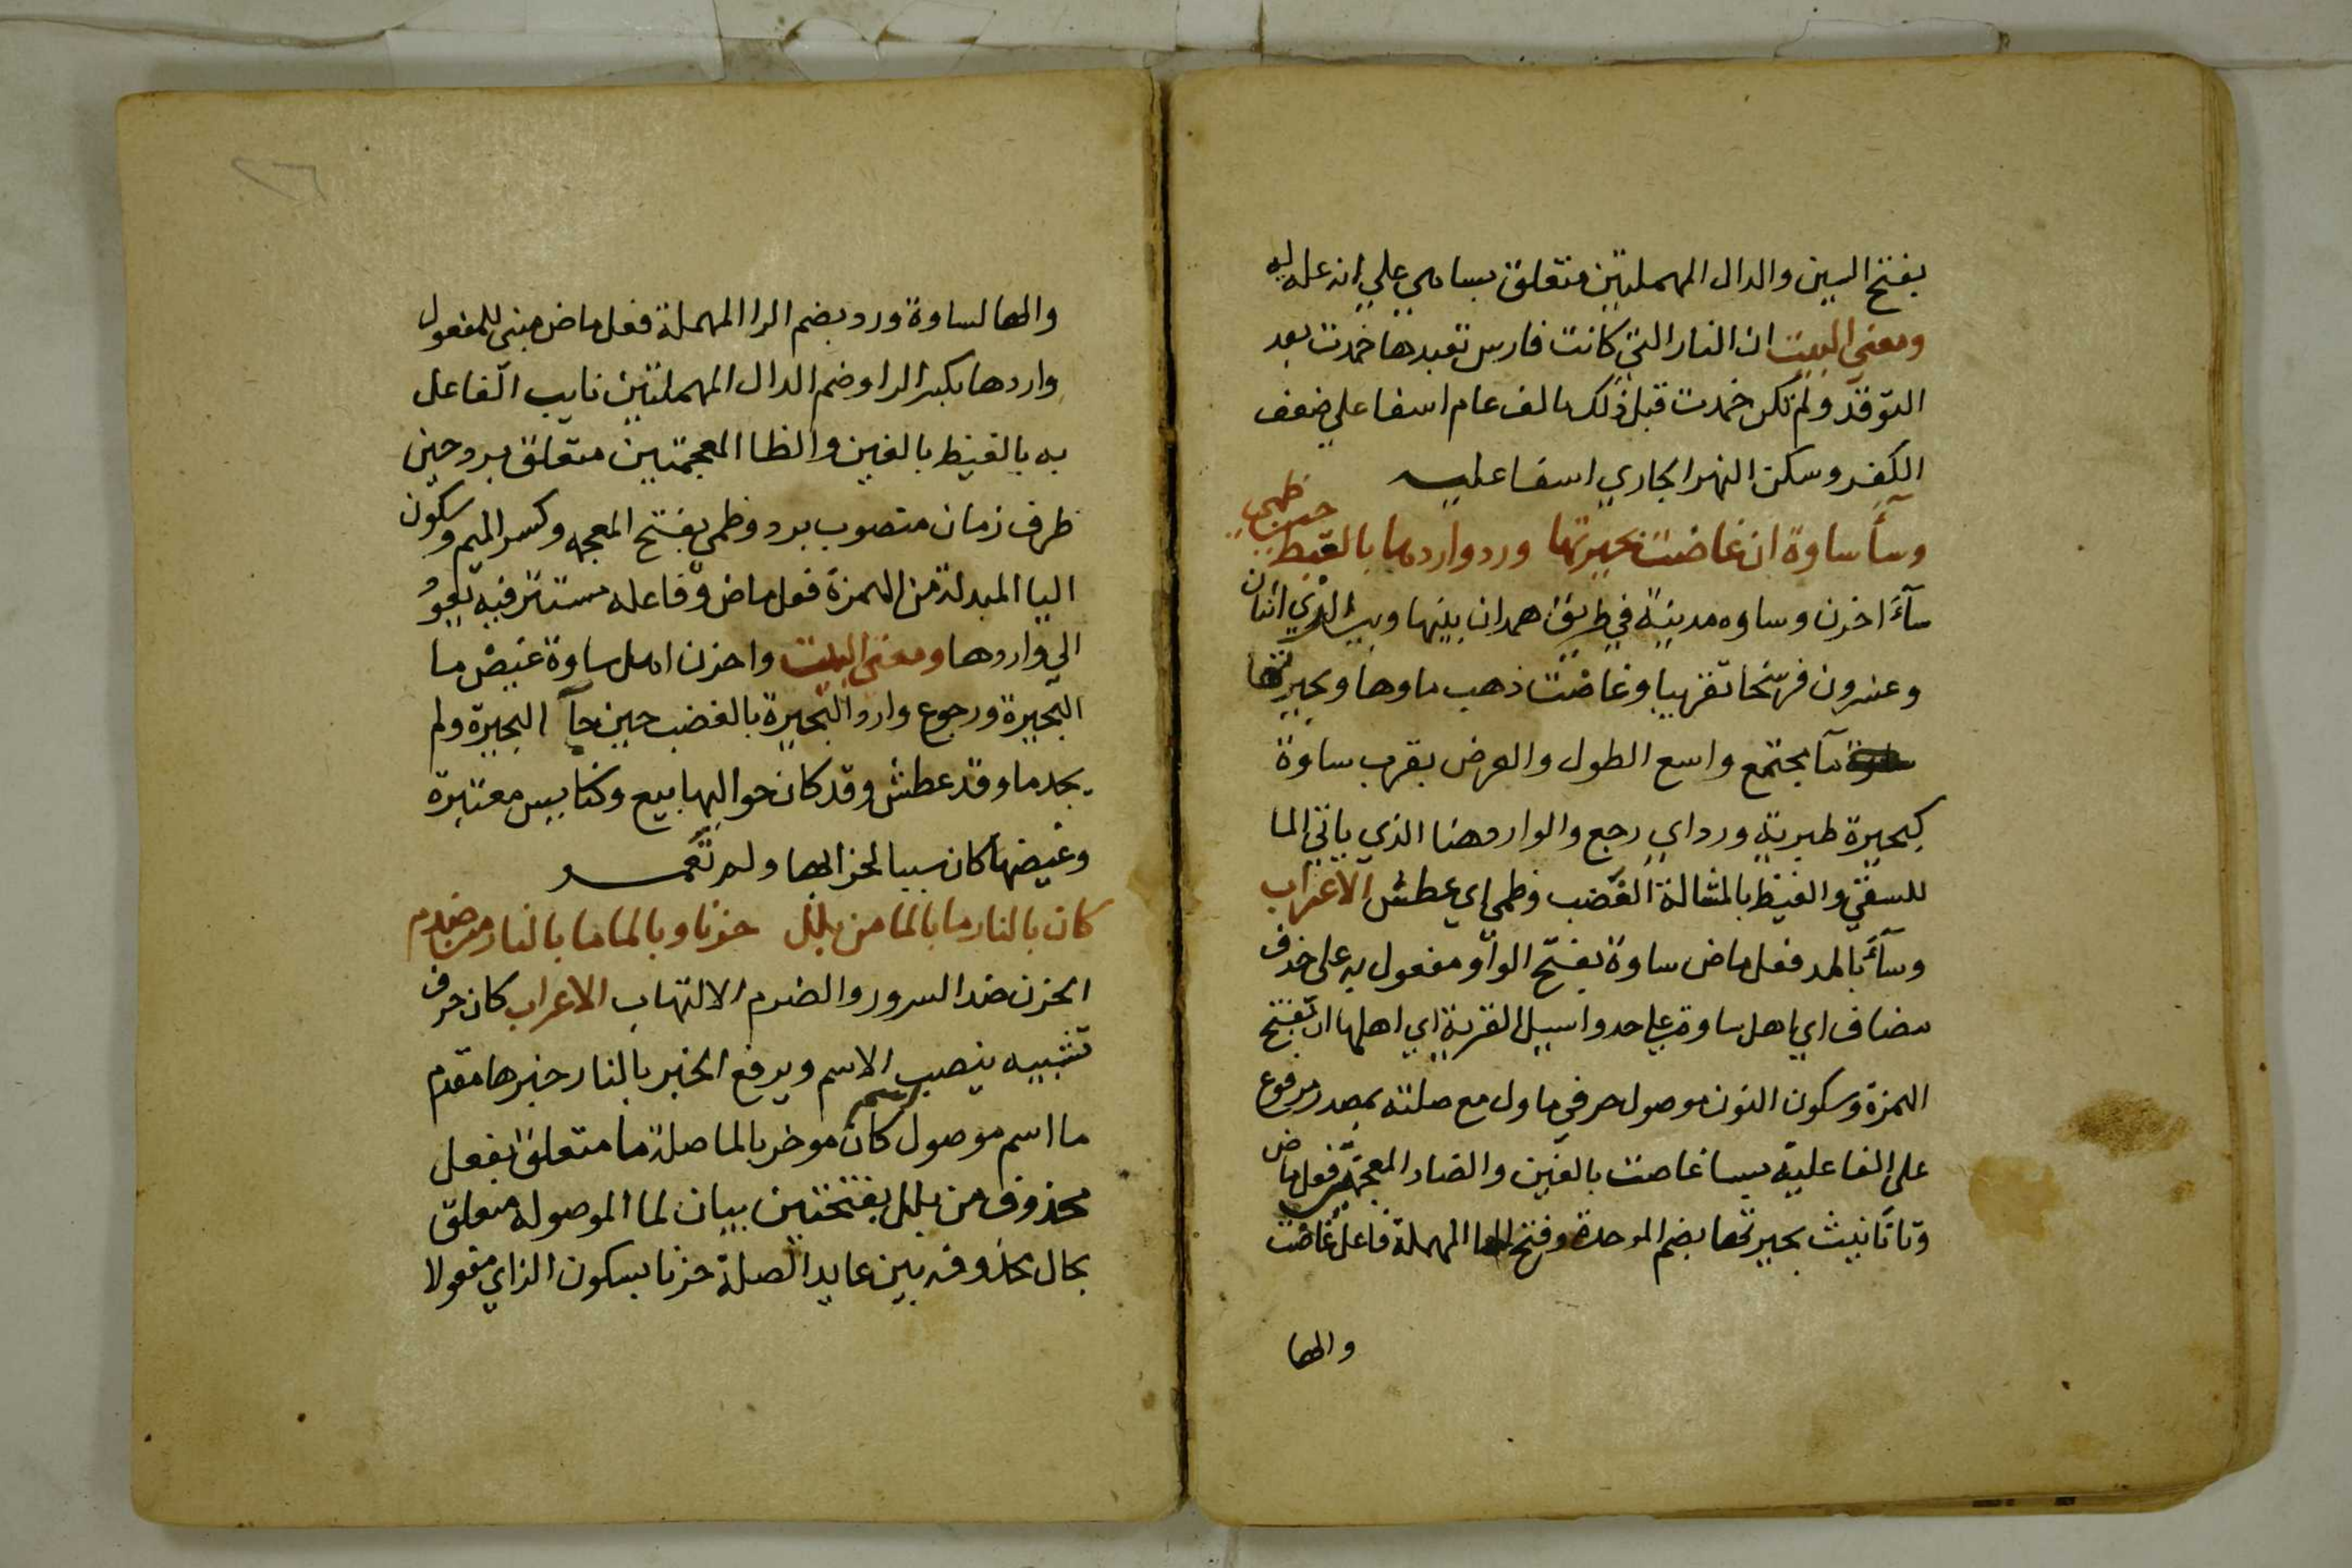 بفتح السين والدال المهملتين متعلق بساهي علي انه علة له
ومعني البيت ان النار التي كانت فارس تعبدها خمدت بعد
التوقد ولم تكن خمدت قبل ذلك بالف عام اسفا علي ضعف
الكفر وسكن النهر الجاري اسفا عليه
وسآء ساوة ان غاضت بحيرتها ورد واردها بالغيظ حين ظمي
سآء احزن وساوه مدينة في طريق همدان بينها وبين الذي اثنان
وعشرون فرسخا تقريبا وغاضت ذهب ماوها وبحيرتها
مآ مجتمع واسع الطول والعرض بقرب ساوة
كبحيرة طبرية ورد اي رجع والوارد هنا الذي ياتي الما
للسقي والغيظ بالمثالة الغضب وظمي اي عطش الاعراب
وسآء بالمد فعل ماض ساوة بفتح الواو مفعول به على حذف
مضاف اي اهل ساوة علي حد واسيل القرية اي اهلها ان بفتح
الهمزة وسكون النون موصول حرفي ماول مع صلته بمصدر مرفوع
على الفاعلية بسا غاضت بالغين والضاد المعجمتين فعل ماض
وتا تانيث بحيرتها بضم الموحدة وفتح الحا المهملة فاعل غاضت
والها
٢٦
والها لساوة ورد بضم الرا المهملة فعل ماض مبني للمفعول
واردها بكسر الرا وضم الدال المهملتين نايب الفاعل
به بالغيظ بالغين والظا المعجمتين متعلق برد وحين
ظرف زمان منصوب برد وظمي بفتح المعجمه وكسر الميم وسكون
اليا المبدلة من الهمزة فعل ماض وفاعله مستتر فيه يعود
الي واردها ومعنى البيت واحزن اهل ساوة غيض ما
البحيرة ورجوع وارد البحيرة بالغضب حين جآ البحيرة ولم
يجد ما وقد عطش وقد كان حواليها بيع وكنايس معتبرة
وغيضها كان سببا لخرابها ولم تعمر
كان بالنار ما بالما من بلل حزنا وبالما ما بالنار من ضرم
الحزن ضد السرور والضرم الالتهاب الاعراب كان حرف
تشبيه ينصب الاسم ويرفع الخبر بالنار خبرها مقدم
ما اسم موصول اسم كان موخر بالما صلة ما متعلق بفعل
محذوف من بلل بفتحتين بيان لما الموصوله متعلق
بحال محذوفه بين عايد الصلة حزنا بسكون الزاي مفعولا